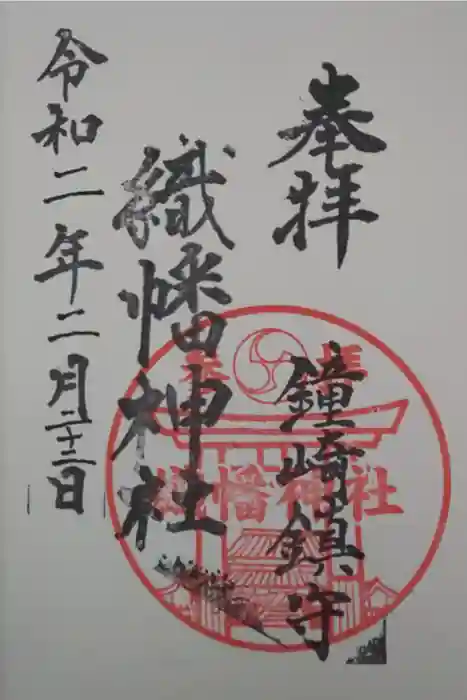 奉拝
鐘崎鎮守
織幡神社
令和二年二月二十二日
奉拝
織幡神社